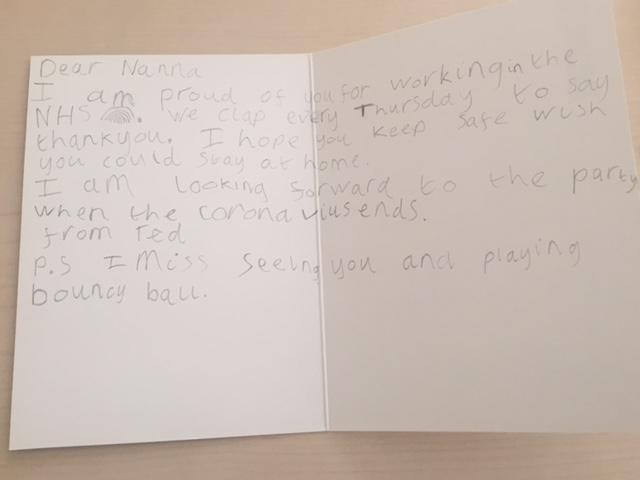 Dear Nanna
I am proud of you for working in the
NHS. we clap every Thursday to say
thankyou. I hope you keep safe wish
you could stay at home.
I am looking forward to the party
when the corona viusends.
from Ted
p.s I Miss seeing you and playing
bouncy ball.